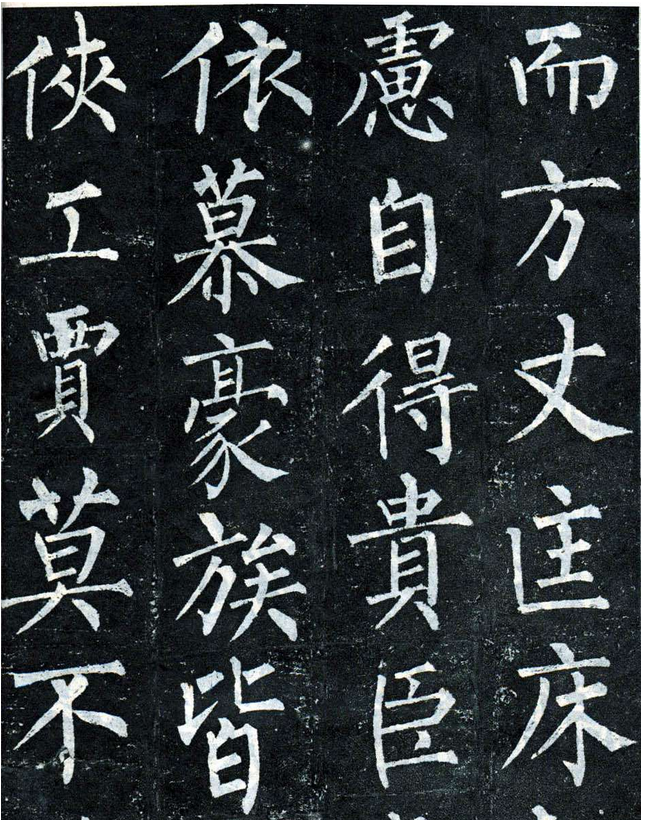 而方丈匡床
慮自得貴臣
依慕豪族皆
俠工賈莫不